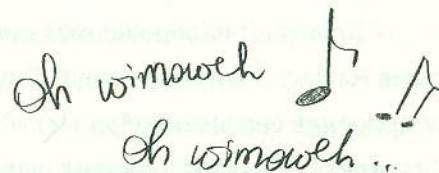 Oh wimoweh
Oh wimoweh...